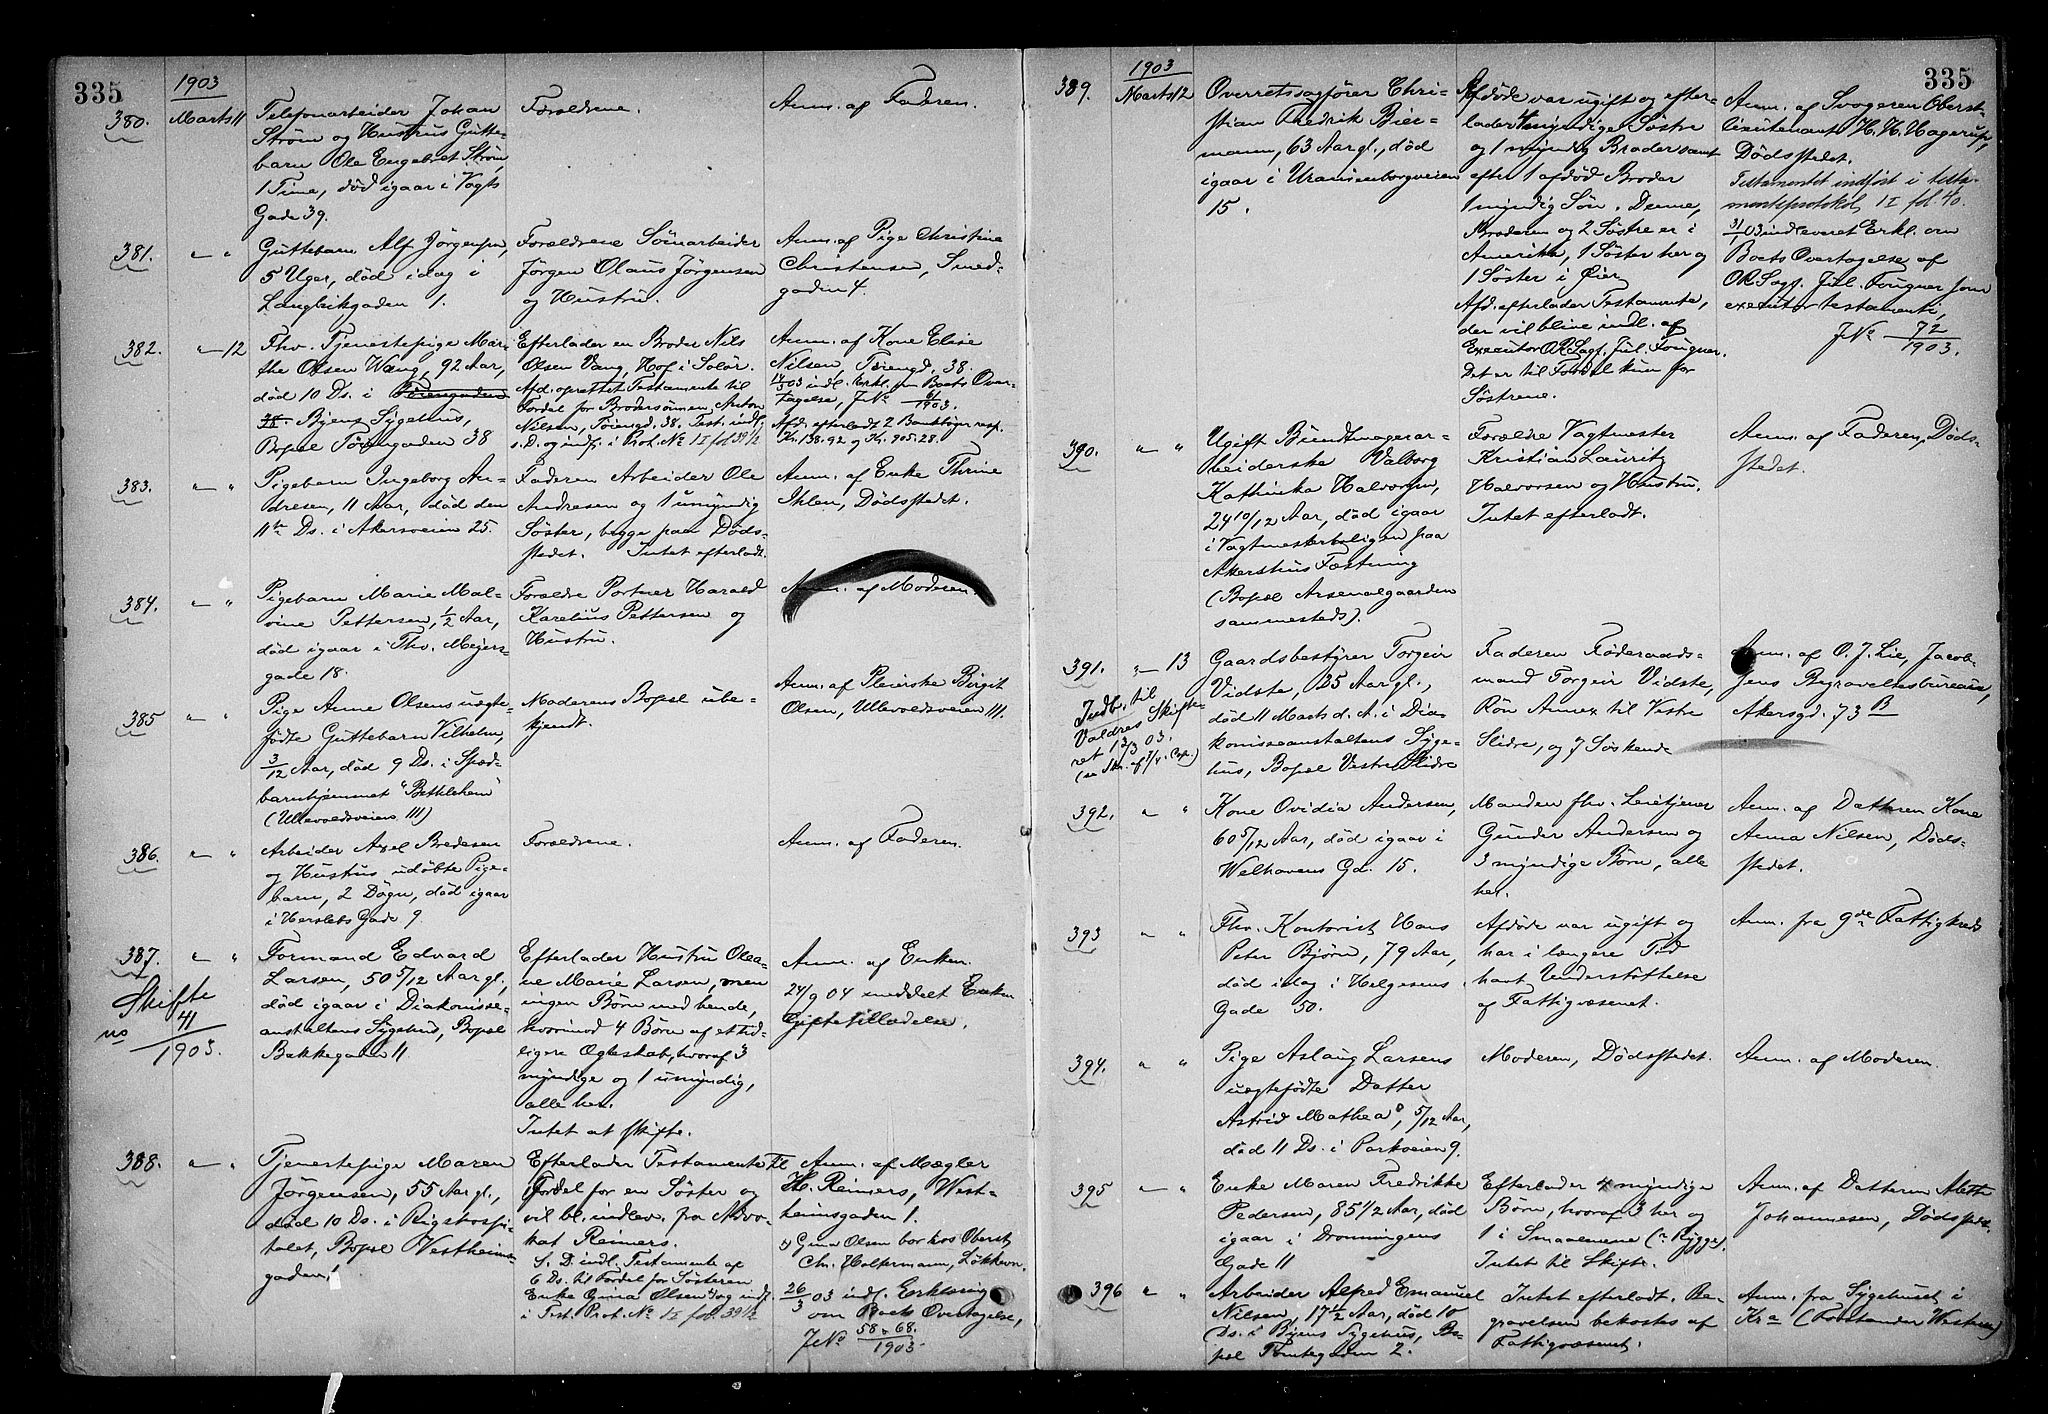 335
1903
380.
Marts 11
Telefonarbeider Johan
Strøm og Hustrus Gutte-
barn Ole Engebret Strøm,
1 Time, død igaar i Vogts
Gade 39.
Forældrene.
Anm. af Faderen.
381.
" "
Guttebarn Alf Jörgensen,
5 Uger, død idag i
Langlikgaden 1.
Forældrene Sömarbeider
Jörgen Olaus Jörgensen
og Hustru.
Anm. af Pige Christine
Christensen, Smed-
gaden 4.
382.
" 12
Fhv. Tjenestepige Mar-
the Olsen Wang, 92 Aar,
død 10 Ds. i Töiengaden
38. Byens Sygehus,
Bopæl Töiengaden 38
Efterlader en Broder Nils
Olsen Vang, Hof i Solör.
Afd. oprettet Testamente til
Fordel for Brodersönnen Anton
Nilsen, Töiengd. 38. Test. indl.
s. D. og indf. i Prot. No I fol 39 1/2
Anm. af Kone Elise
Nilsen, Töiengd. 38.
14/3 03 indl. Erkl. om Boets Over-
tagelse, J No 61/1903.
Afd. efterladt 2 Bankböger resp.
Kr. 138.92 og Kr. 905.28.
383.
" "
Pigebarn Ingeborg An-
dresen, 11 Aar, død den
11te Ds. i Akersveien 25.
Faderen Arbeider Ole
Andresen og 1 umyndig
Søster, begge paa Døds-
stedet. Intet efterladt.
Anm. af Enke Thrine
Ihlen, Dødsstedet.
384.
" "
Pigebarn Marie Mal-
vine Pettersen, 1/2 Aar,
død igaar i Thv. Meyers-
gade 18.
Forældre Portner Harald
Karelius Pettersen og
Hustru.
Anm. af Moderen.
385
" "
Pige Anne Olsens uægte-
fødte Guttebarn Vilhelm,
3/12 Aar, død 9 Ds. i Spæd-
barnhjemmet "Bethlehem"
(Ullevoldsveien 111)
Moderens Bopæl ube-
kjendt.
Anm. af Pleierske Birgit
Olsen, Ullevoldsveien 111.
386.
" "
Arbeider Axel Bredesen
og Hustrus udøbte Pige-
barn, 2 Døgn, død igaar
i Herslebs Gade 9.
Forældrene.
Anm. af Faderen.
387.
" "
Skifte
No 41/1903.
Formand Edvard
Larsen, 50 5/12 Aar gl.,
død igaar i Diakonisse-
anstaltens Sygehus, Bopæl
Bakkegaden 11
Efterlader Hustru Olea-
ne Marie Larsen, men
ingen Børn med hende,
hvorimod 4 Børn af et tid-
ligere Ægteskab, hvoraf 3
myndige og 1 umyndig,
alle her.
Intet at skifte.
Anm. af Enken.
24/9 04 meddelt Enken
Giftetilladelse.
388.
" "
Tjenestepige Maren
Jörgensen, 55 Aar gl.,
død 10 Ds. i Rigshospi-
talet, Bopæl Vestheim-
gaden 1
Efterlader Testamente til
Fordel for en Søster og
vil bl. indlev. fra Advo-
kat Reimers.
S. D. indl. Testamente af
6 Ds. til Fordel for Søsteren
Enke Gina Olsen x) og indf.
i Test. Prot. No I fol. 39 1/2
Anm. af Mægler
H. Reimers, Vest-
heimsgaden 1.
x) Gina Olsen bor hos Oberst
Chr. Holtermann, Løkkevn.
26/3 03 indl. Erklæring
om Boets Overtagelse,
J No 58 & 68./1903.
335
1903
389.
Marts 12
Overretssagfører Chri-
stian Fredrik Bier-
mann, 63 Aar gl., død
igaar i Uranienborgveien
15.
Afdøde var ugift og efter-
lader 4 myndige Søstre
og 1 myndig Broder samt
efter 1 afdød Broder
1 myndig Søn. Denne,
Broderen og 2 Søstre er i
Amerika, 1 Søster her og
1 Søster i Øier.
Afd. efterlader Testamente,
der vil blive indl. af
Executor ORSagf. Jul. Fougner.
Det er til Fordel kun for
Søstrene.
Anm. af Svogeren Oberst-
lieutenant H. H. Hagerup,
Dødsstedet.
Testamentet indført i testa-
menteprotokol I fol. 40.
31/ 03 indleveret Erkl. om
Boets Overtagelse af
ORSagf. Jul. Fougner som
executor testamenti,
J No 72/1903.
390.
" "
Ugift Bundtmagerar-
beiderske Valborg
Kathinka Halvorsen,
24 10/12 Aar, død igaar
i Vagtmesterboligen paa
Akershus Fæstning
(Bopæl Arsenalgaarden
sammesteds).
Forældre Vagtmester
Kristian Lauritz
Halvorsen og Hustru.
Intet efterladt.
Anm. af Faderen, Døds-
stedet.
391.
" 13
Indb. til
Valdres Skifte-
ret 13/3 03.
Gaardsbestyrer Torgeir
Vidste, 25 Aar gl.,
død 11 Marts d. A. i Dia-
konisseanstaltens Syge-
hus, Bopæl Vestre Slidre
Faderen Föderaads-
mand Torgeir Vidste,
Røn Annex til Vestre
Slidre, og 7 Søskende
Anm. af O. J. Lie, Jacob-
sens Begravelsesbureau,
Akersgd. 73 B
392.
" "
Kone Ovidia Andersen,
60 5/12 Aar, død igaar i
Welhavens Gd. 15.
Manden fhv. Leietjener
Gunder Andersen og
3 myndige Børn, alle
her.
Anm. af Datteren Kone
Anna Nilsen, Døds-
stedet.
393
" "
Fhv. Kontorist Hans
Peter Bjørn, 79 Aar,
død idag i Helgesens
Gade 50.
Afdøde var ugift og
har i længere Tid
havt Understøttelse
af Fattigvæsenet.
Anm. fra 9de Fattigkreds
394.
" "
Pige Aslaug Larsens
uægtefødte Datter
Astrid Mathea, 5/12 Aar,
død 11 Ds. i Parkveien 9.
Moderen, Dødsstedet.
Anm. af Moderen.
395
" "
Enke Maren Fredrikke
Pedersen, 85 1/2 Aar, død
igaar i Dronningens
Gade 11
Efterlader 4 myndige
Børn, hvoraf 3 her og
1 i Smaalenene (Rygge).
Intet til Skifte.
Anm. af Datteren Alette
Johannesen, Dødsstedet.
396
" "
Arbeider Alfred Emanuel
Nilsen, 17 1/2 Aar, død 10
Ds. i Byens Sygehus, Bo-
pæl Tomtegaden 2.
Intet efterladt. Be-
gravelsen bekostes af
Fattigvæsenet.
Anm. fra Sygehuset i
Kra (Forstander Westrum)